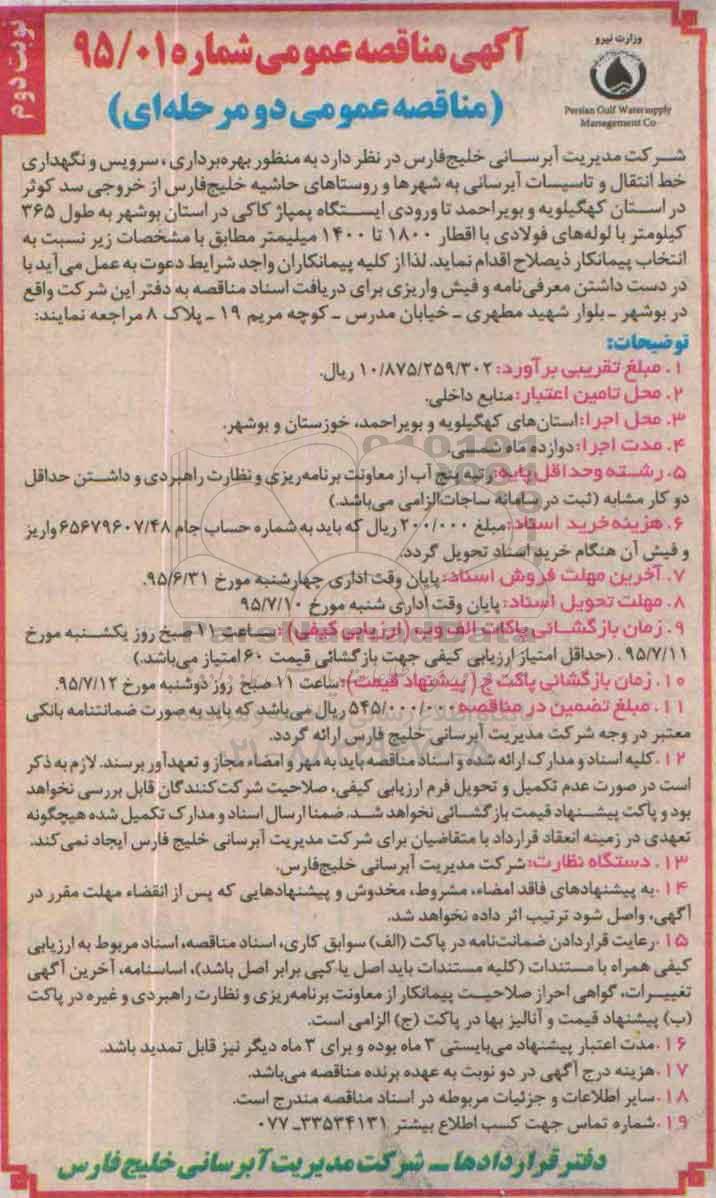 نوبت دوم
آگهی مناقصه عمومی شماره ۹۵/۰۱
(مناقصه عمومی دو مرحله‌ای)
وزارت نیرو
Persian Gulf Watersupply
Management Co
شرکت مدیریت آبرسانی خلیج‌فارس در نظر دارد به منظور بهره‌برداری، سرویس و نگهداری
خط انتقال و تاسیسات آبرسانی به شهرها و روستاهای حاشیه خلیج‌فارس از خروجی سد کوثر
در استان کهگیلویه و بویراحمد تا ورودی ایستگاه پمپاژ کاکی در استان بوشهر به طول ۳۶۵
کیلومتر با لوله‌های فولادی با اقطار ۱۸۰۰ تا ۱۴۰۰ میلیمتر مطابق با مشخصات زیر نسبت به
انتخاب پیمانکار ذیصلاح اقدام نماید. لذا از کلیه پیمانکاران واجد شرایط دعوت به عمل می‌آید با
در دست داشتن معرفی‌نامه و فیش واریزی برای دریافت اسناد مناقصه به دفتر این شرکت واقع
در بوشهر ـ بلوار شهید مطهری ـ خیابان مدرس ـ کوچه مریم ۱۹ ـ پلاک ۸ مراجعه نمایند:
توضیحات:
۱. مبلغ تقریبی برآورد: ۱۰/۸۷۵/۲۵۹/۳۰۲ ریال.
۲. محل تامین اعتبار: منابع داخلی.
۳. محل اجرا: استان‌های کهگیلویه و بویراحمد، خوزستان و بوشهر.
۴. مدت اجرا: دوازده ماه شمسی.
۵. رشته وحداقل پایه: رتبه پنج آب از معاونت برنامه‌ریزی و نظارت راهبردی و داشتن حداقل
دو کار مشابه (ثبت در سامانه ساجات الزامی می‌باشد.)
۶. هزینه خرید اسناد: مبلغ ۲۰۰/۰۰۰ ریال که باید به شماره حساب جام ۶۵۶۷۹۶۰۷/۴۸ واریز
و فیش آن هنگام خرید اسناد تحویل گردد.
۷. آخرین مهلت فروش اسناد: پایان وقت اداری چهارشنبه مورخ ۹۵/۶/۳۱.
۸. مهلت تحویل اسناد: پایان وقت اداری شنبه مورخ ۹۵/۷/۱۰
۹. زمان بازگشائی پاکات الف و ب (ارزیابی کیفی): ساعت ۱۱ صبح روز یکشنبه مورخ
۹۵/۷/۱۱. (حداقل امتیاز ارزیابی کیفی جهت بازگشائی قیمت ۶۰ امتیاز می‌باشد.)
۱۰. زمان بازگشائی پاکت ج (پیشنهاد قیمت): ساعت ۱۱ صبح روز دوشنبه مورخ ۹۵/۷/۱۲.
۱۱. مبلغ تضمین در مناقصه: ۵۴۵/۰۰۰/۰۰۰ ریال می‌باشد که باید به صورت ضمانتنامه بانکی
معتبر در وجه شرکت مدیریت آبرسانی خلیج فارس ارائه گردد.
۱۲. کلیه اسناد و مدارک ارائه شده و اسناد مناقصه باید به مهر و امضاء مجاز و تعهدآور برسند. لازم به ذکر
است در صورت عدم تکمیل و تحویل فرم ارزیابی کیفی، صلاحیت شرکت‌کنندگان قابل بررسی نخواهد
بود و پاکت پیشنهاد قیمت بازگشائی نخواهد شد. ضمنا ارسال اسناد و مدارک تکمیل شده هیچگونه
تعهدی در زمینه انعقاد قرارداد با متقاضیان برای شرکت مدیریت آبرسانی خلیج فارس ایجاد نمی‌کند.
۱۳. دستگاه نظارت: شرکت مدیریت آبرسانی خلیج‌فارس.
۱۴. به پیشنهادهای فاقد امضاء، مشروط، مخدوش و پیشنهادهایی که پس از انقضاء مهلت مقرر در
آگهی، واصل شود ترتیب اثر داده نخواهد شد.
۱۵. رعایت قراردادن ضمانت‌نامه در پاکت (الف) سوابق کاری، اسناد مناقصه، اسناد مربوط به ارزیابی
کیفی همراه با مستندات (کلیه مستندات باید اصل یا کپی برابر اصل باشد)، اساسنامه، آخرین آگهی
تغییرات، گواهی احراز صلاحیت پیمانکار از معاونت برنامه‌ریزی و نظارت راهبردی و غیره در پاکت
(ب) پیشنهاد قیمت و آنالیز بها در پاکت (ج) الزامی است.
۱۶. مدت اعتبار پیشنهاد می‌بایستی ۳ ماه بوده و برای ۳ ماه دیگر نیز قابل تمدید باشد.
۱۷. هزینه درج آگهی در دو نوبت به عهده برنده مناقصه می‌باشد.
۱۸. سایر اطلاعات و جزئیات مربوطه در اسناد مناقصه مندرج است.
۱۹. شماره تماس جهت کسب اطلاع بیشتر ۳۳۵۳۴۱۳۱ـ۰۷۷
دفتر قراردادها ـ شرکت مدیریت آبرسانی خلیج فارس